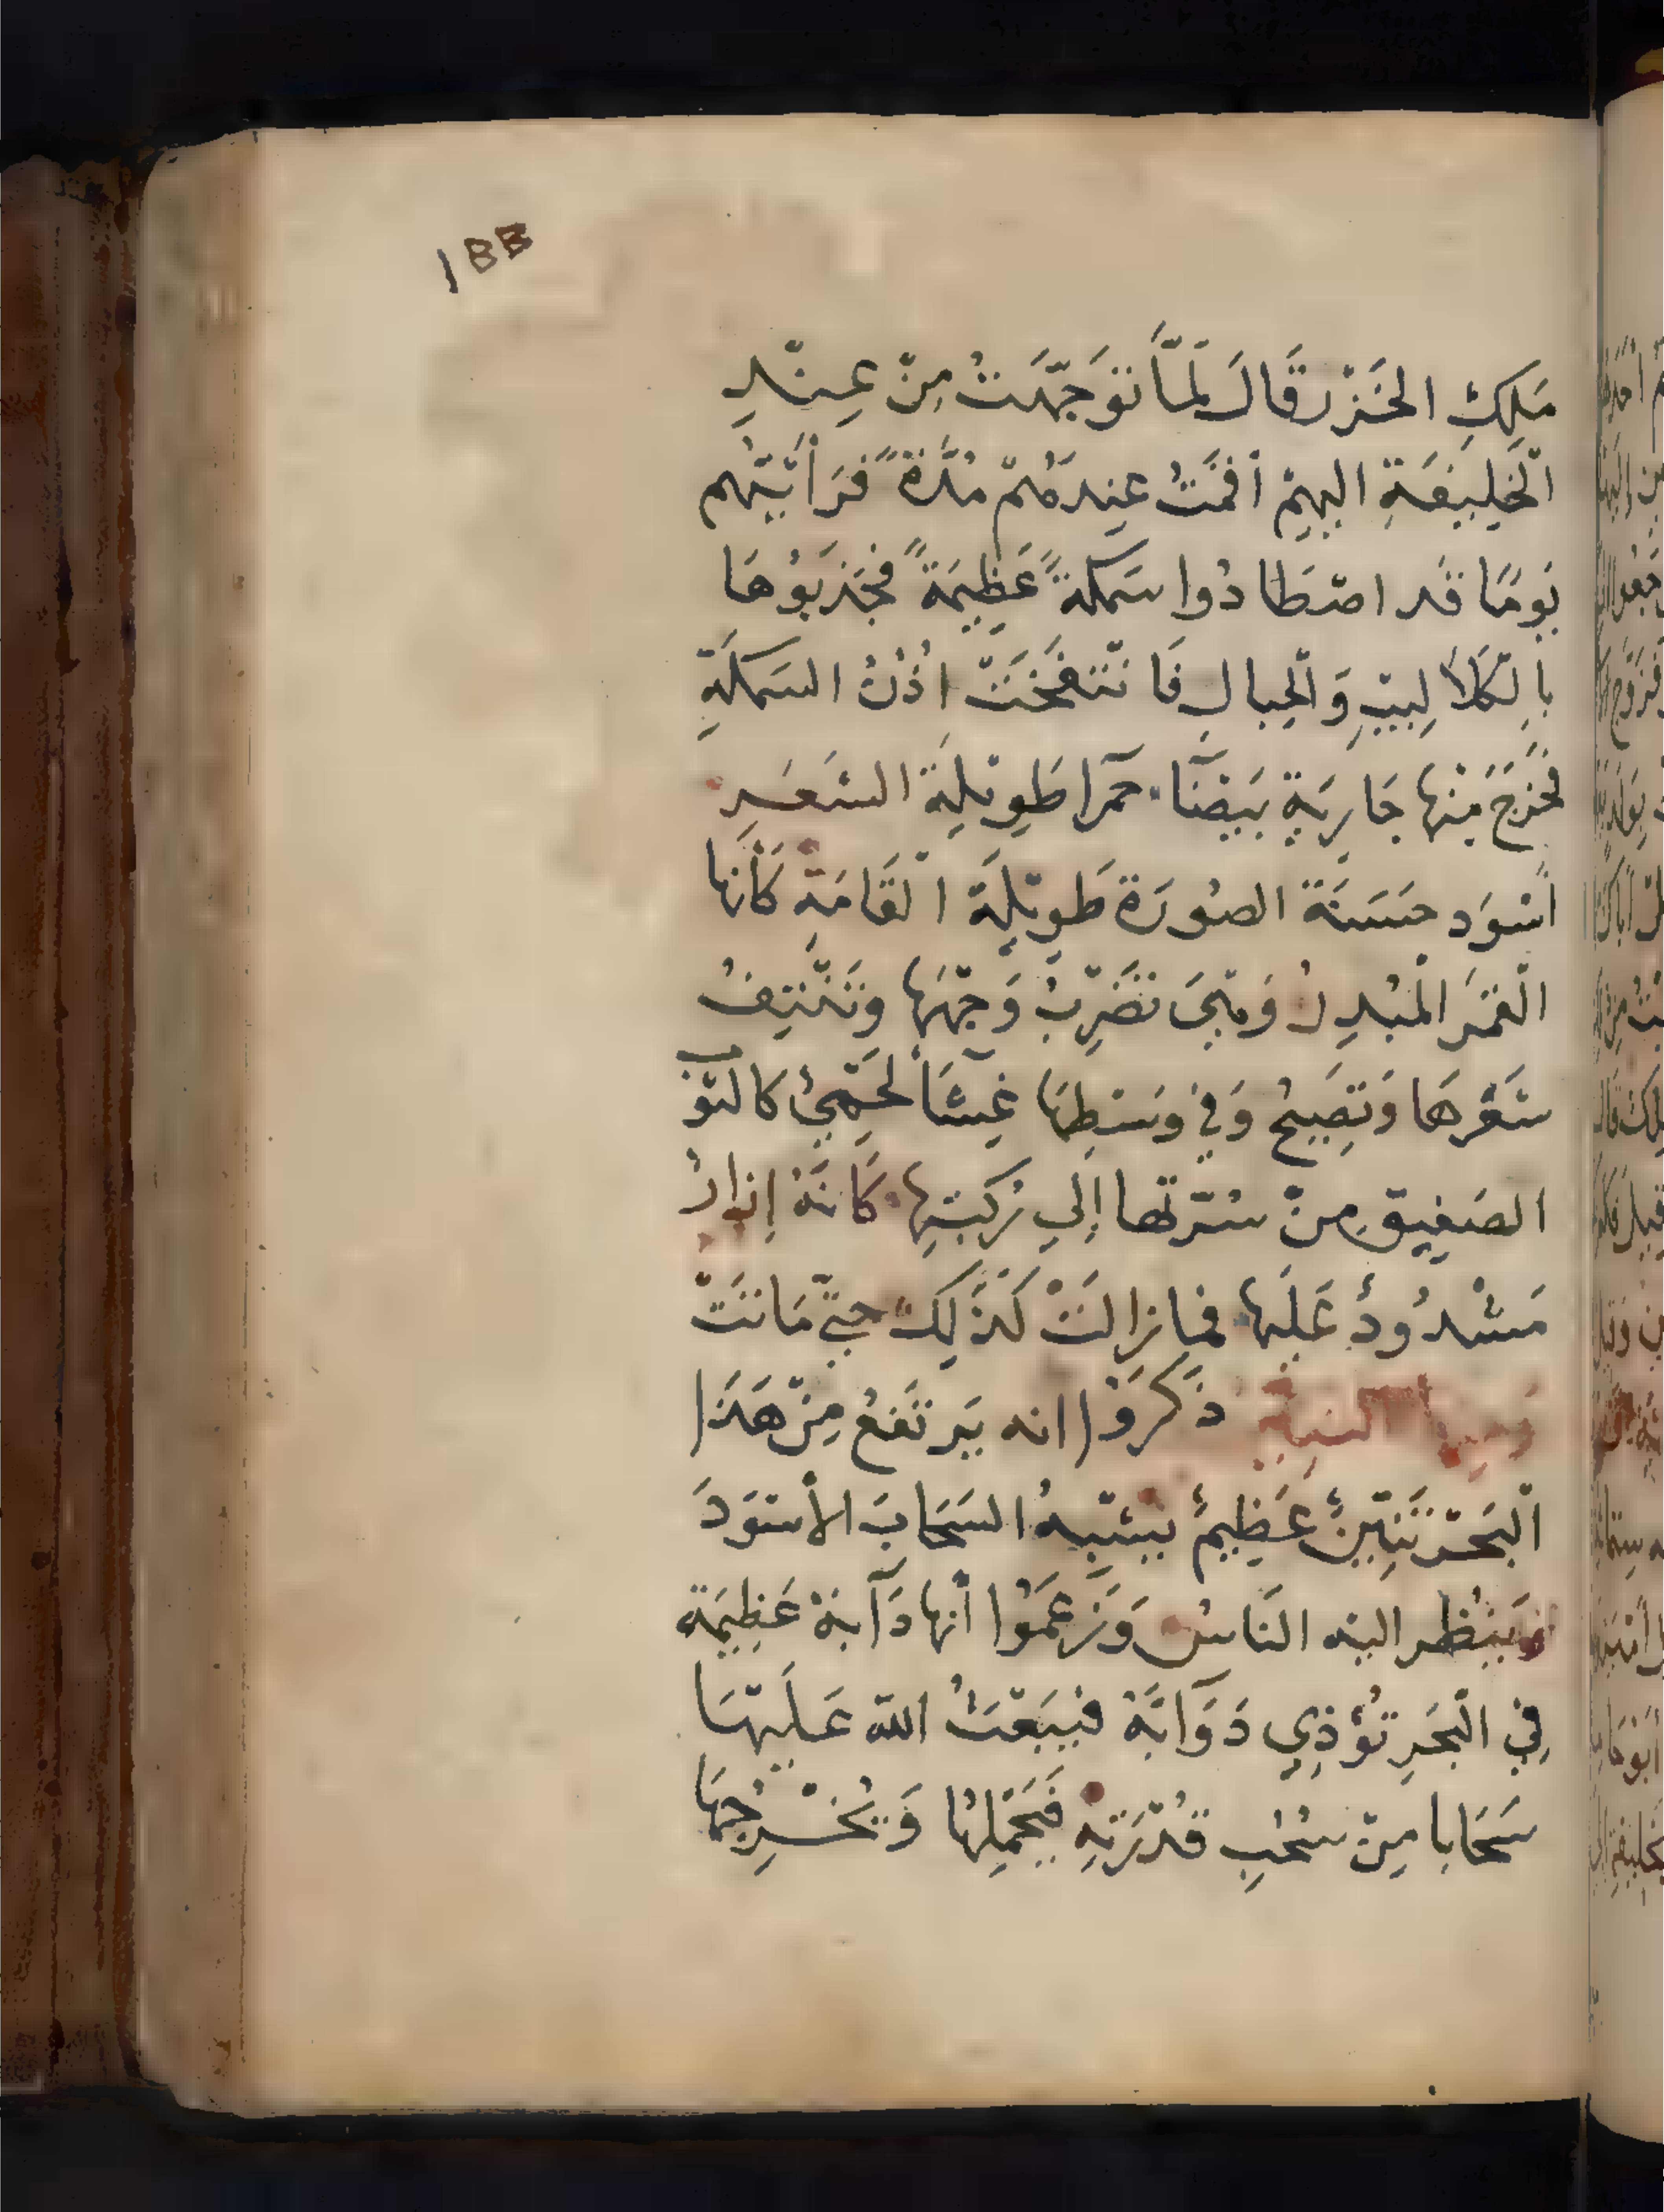 188
مَلِكِ الخَزَر قَالَ لَمَّا تَوَجَّهْتُ مِنْ عِنْدِ
الْخَلِيفَةِ اليهِمْ أقمْتُ عِندَهُمْ مُدَّةً فَرَأَيْتُهم
يَومًا قَد اصْطَادُوا سَمكةً عَظِيمَةً فجَذَبُوهَا
بِالكَلَالِيبِ وَالْحِبالِ فَانْتَفَخَتْ اُذُنُ السَمكَةِ
فخَرَجَ مِنْهَا جَارِيَة بَيضَآ حمرا طَوِيْلَة الشَعَرِ
أسْوَد حَسَنَة الصُورَة طَوِيْلَة الْقَامَةِ كَأنها
الْقَمَر الْمُبْدِر وَهِيَ تَضْرِبُ وَجْهَهَا وَتَنْتِفُ
شَعْرهَا وَتَصِيحُ وَفي وَسْطِهَا غِشَآ لَحْمِيٌ كالثَوْب
الصَفِيقِ مِنْ سُرّتها إِلي رُكبَتِهَا كَانَهُ إزارٌ
مَشْدُودٌ عَلَيها فما زالَتْ كَذَلِكَ حتيّ مَاتَتْ
ذَكَرَوُا انه يَرتَفعُ مِنْ هَذَا
الْبَحْر تَنِّينٌ عَظِيمٌ يُشْبِهُ السَحَابَ الأسْوَدَ
وَيَنْظُر اليْه النَاسُ وَزَعَمُوا أنها دَآبة عَظِيمَة
فِي الْبَحْرِ تُؤْذِي دَوَآبَّهُ فيَبْعَثُ الله عَلَيْهَا
سَحَابا مِنْ سُحُبِ قُدْرَتِهِ فَيَحْمِلُهَا وَيُخْرِجُهَا